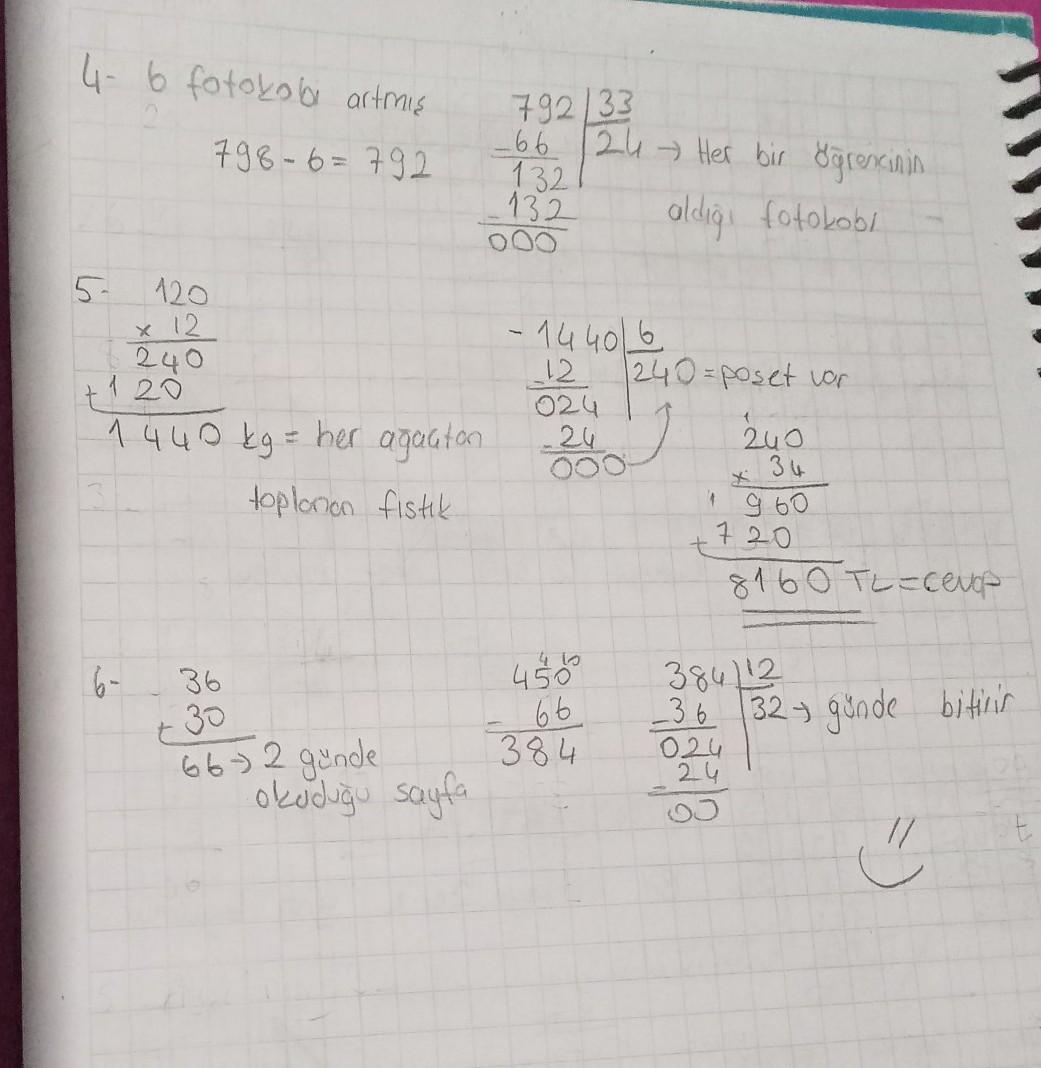 4- 6 fotokobi artmış
798-6=792
792 33
-66 24 → Her bir öğrencinin
132
-132 aldığı fotokobi
000
5- 120
x 12
240
+120
1440 kg = her ağaçtan
toplanan fıstık
-1440 6
-12 240=poset var
024
-24
000
1
240
x 34
1 960
+720
8160 TL=cevap
6- 36
+30
66→ 2 günde
okuduğu sayfa
4 10
450
- 66
384
384 12
-36 32→ günde bitirir
024
-24
00
t